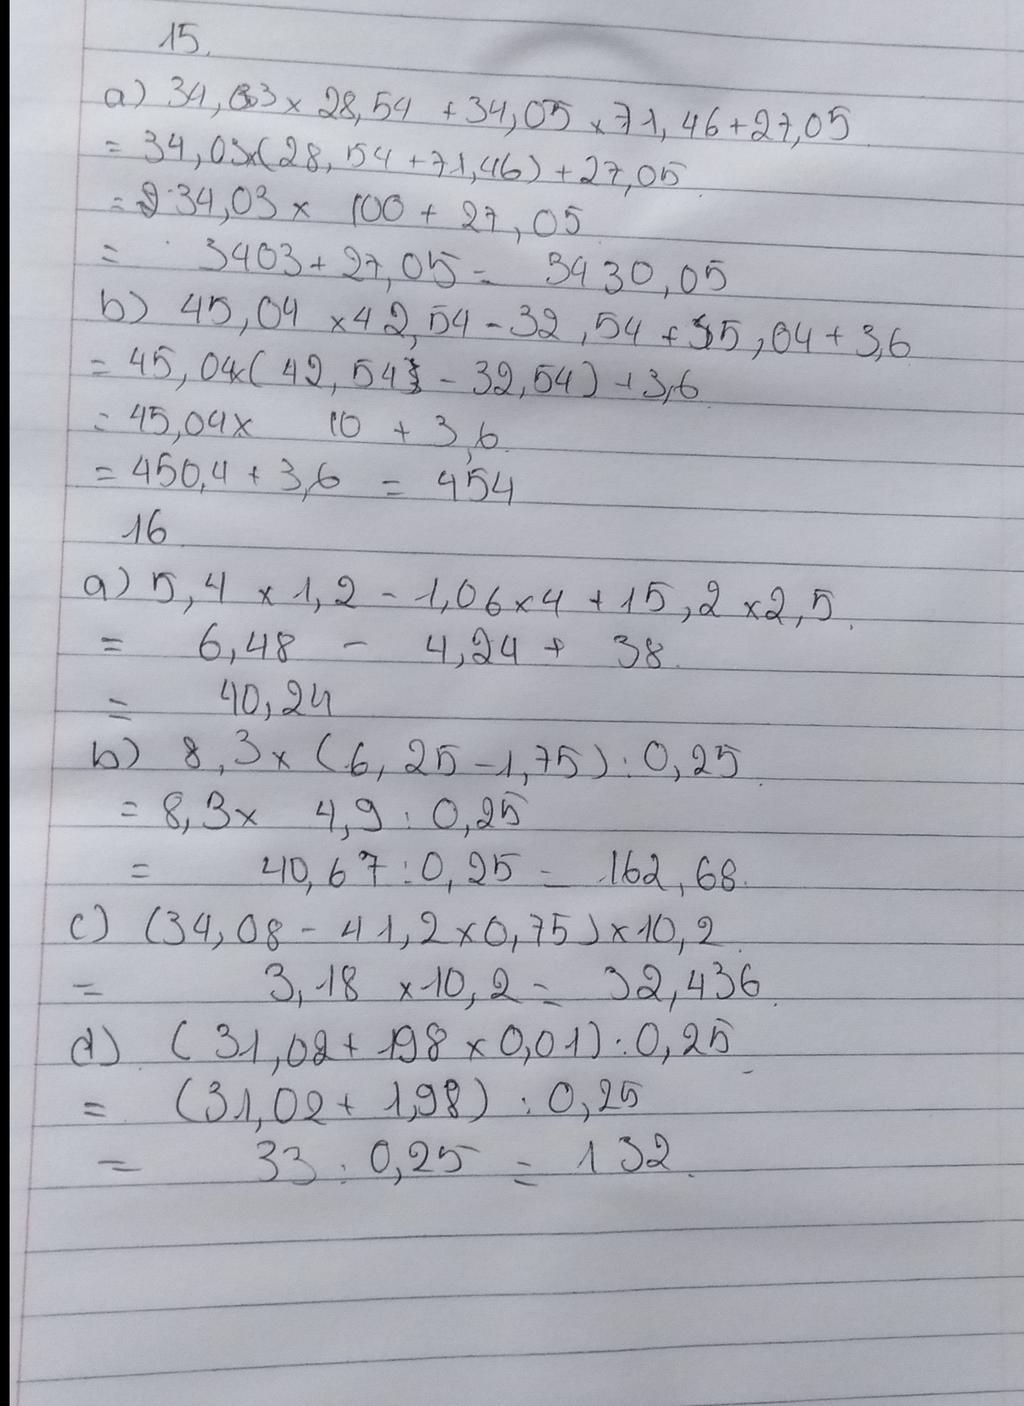 15.
a) 34,03 x 28,54 + 34,05 x 71,46 + 27,05
= 34,03x(28,54 + 71,46) + 27,05
= 34,03 x 100 + 27,05
= 3403 + 27,05 = 3430,05
b) 45,04 x 42,54 - 32,54 + 35,04 + 3,6
= 45,04x(42,54 - 32,54) + 3,6
= 45,04x 10 + 3,6
= 450,4 + 3,6 = 454
16
a) 5,4 x 1,2 - 1,06 x 4 + 15,2 x 2,5.
= 6,48 - 4,24 + 38
= 40,24
b) 8,3x (6,25 - 1,75) : 0,25
= 8,3x 4,9 : 0,25
= 40,67 : 0,25 = 162,68.
c) (34,08 - 41,2 x 0,75) x 10,2
= 3,18 x 10,2 = 32,436
d) (31,02 + 198 x 0,01) : 0,25
= (31,02 + 1,98) : 0,25
= 33 : 0,25 = 132.